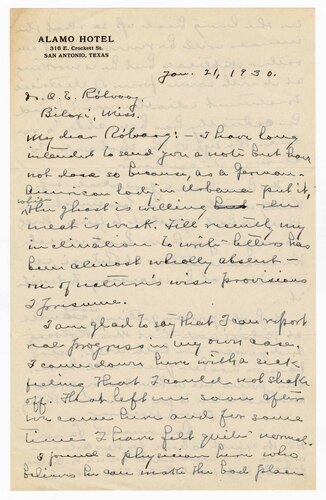 ALAMO HOTEL
316 E. Crockett St.
SAN ANTONIO, TEXAS
Jan. 21, 1930.
Dr. O. E. Rölvaag,
Biloxi, Miss.
My dear Rölvaag: – I have long
intended to send you a note but have
not done so because, as a German-
American lady in Urbana put it,
while
"The ghost is willing but den
meat is wick. Till recently, my
inclination to write letters has
been almost wholly absent –
one of nature's wise provisions
I presume.
I am glad to say that I can report
real progress in my own case.
I came down here with a sick
feeling that I could not shake
off. That left me soon after
we came here and for some
time I have felt quite normal.
I found a physician here who
believes he can make the bad place